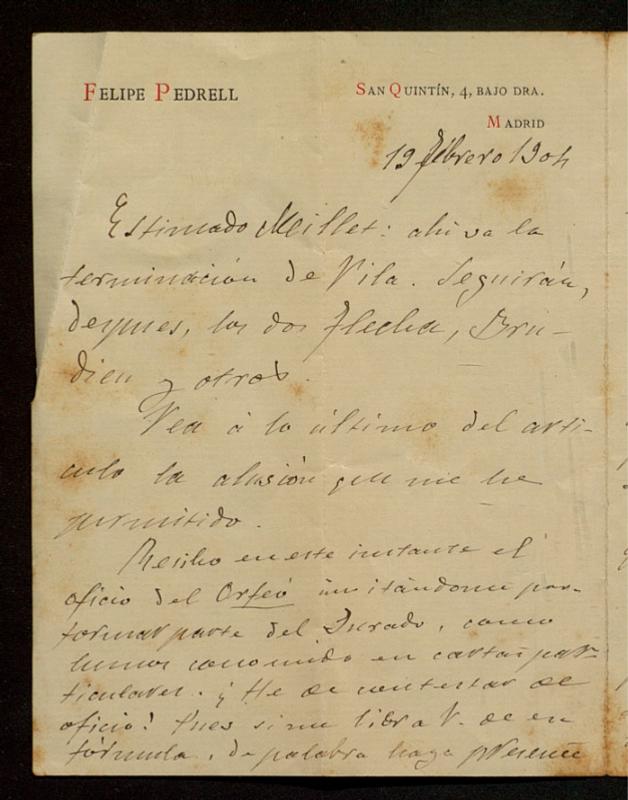 FELIPE PEDRELL
SAN QUINTÍN, 4, BAJO DRA.
MADRID
19 febrero 1904
Estimado Millet: ahí va la
terminación de Vila. Seguirán,
despues, los dos Flecha, Bru-
dieu y otros.
Vea á lo último del artí-
culo la alusión que me he
permitido.
Recibo en este instante el
oficio del Orfeó invitándome par
formar parte del Jurado, como
hemos convenido en cartas par-
ticulares. ¿He de contestar de
oficio? Pues si me libra V. de esa
fórmula, de palabra haga presente